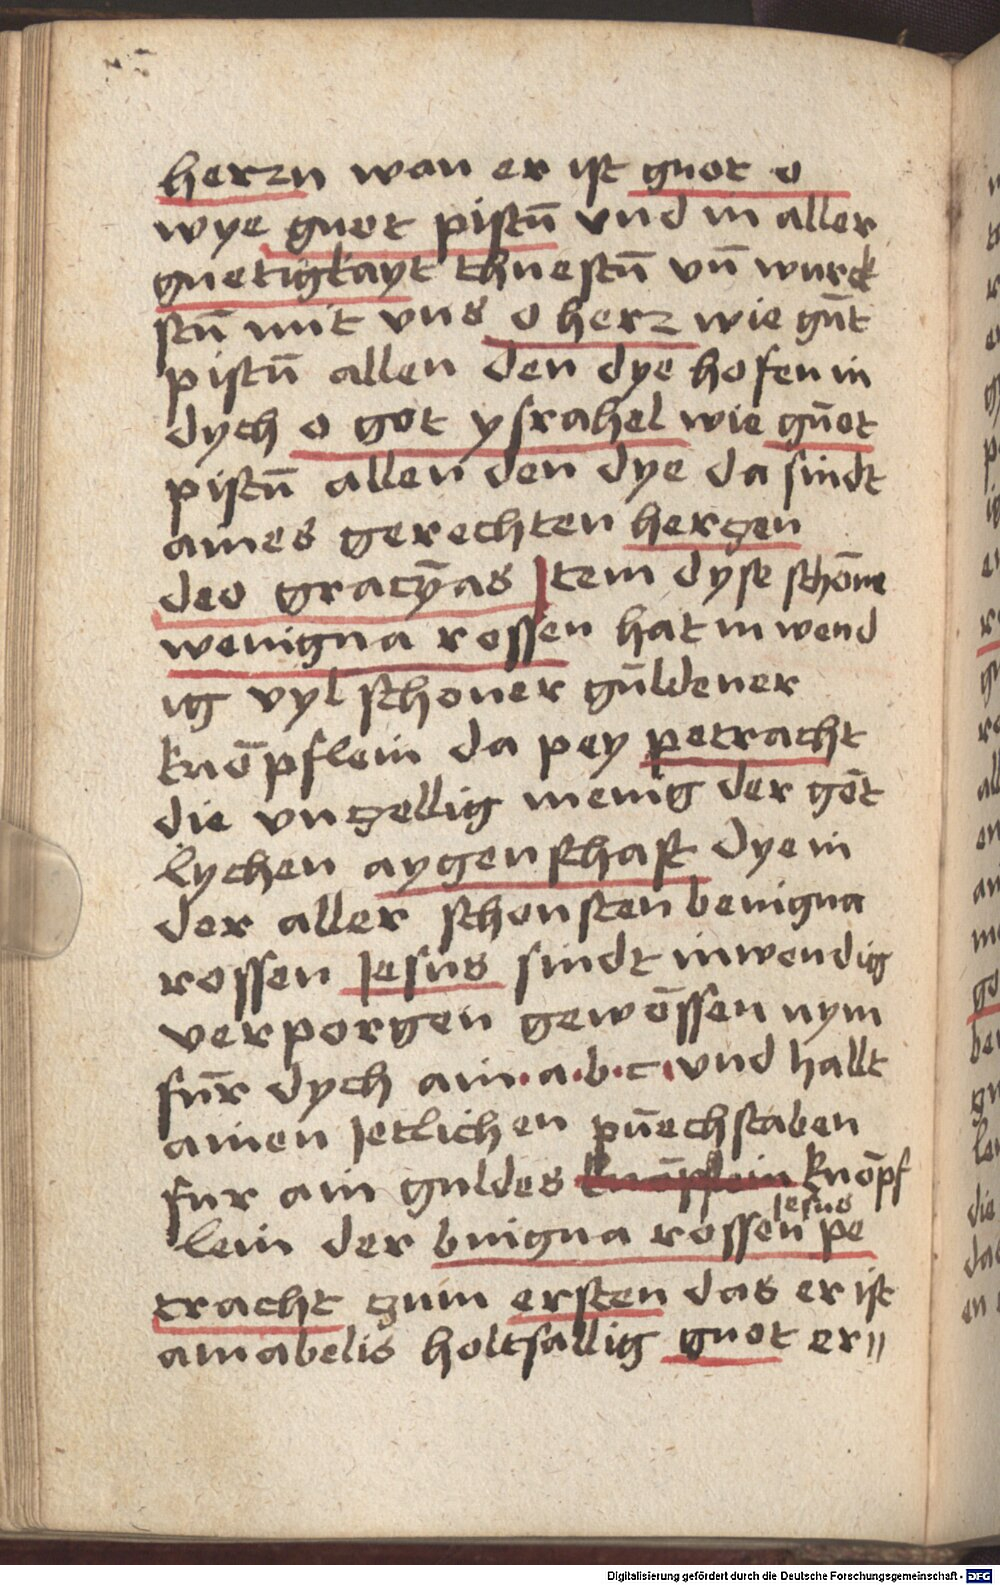 herzn wan er ist guot o
wye guot pistu̅ vnd in aller
guetigkayt thuestu̅ vn̅ wurck
stu̅ mit vns o herz wie gu̅t
pistu̅ allen den dye hofen in
dych o got ysrahel wie gu̅et
pistu̅ allen den dye da sindt
aines gerechten herczen
deo gracy̅as Item dyse scho̅ne
wenigna rossen hat in wend
ig vyl schoner gu̅ldener
kno̅pflein da pey petracht
die vnzellig menig der go̅t
lychen aygenschaft dye in
der aller schonsten benigna
rossen Jesus sindt inwendig
verporgen gewo̅ssen nym
fu̅r dych ain·a·b·c·vnd hallt
ainen Jetlichen pu̅echstaben
fur ain guldes kno̅pflein kno̅pf
Jesus
lein der bnigna rossen pe
tracht zum ersten das er ist
amabelis holtsallig guot er//
Digitalisierung gefördert durch die Deutsche Forschungsgemeinschaft - DFG